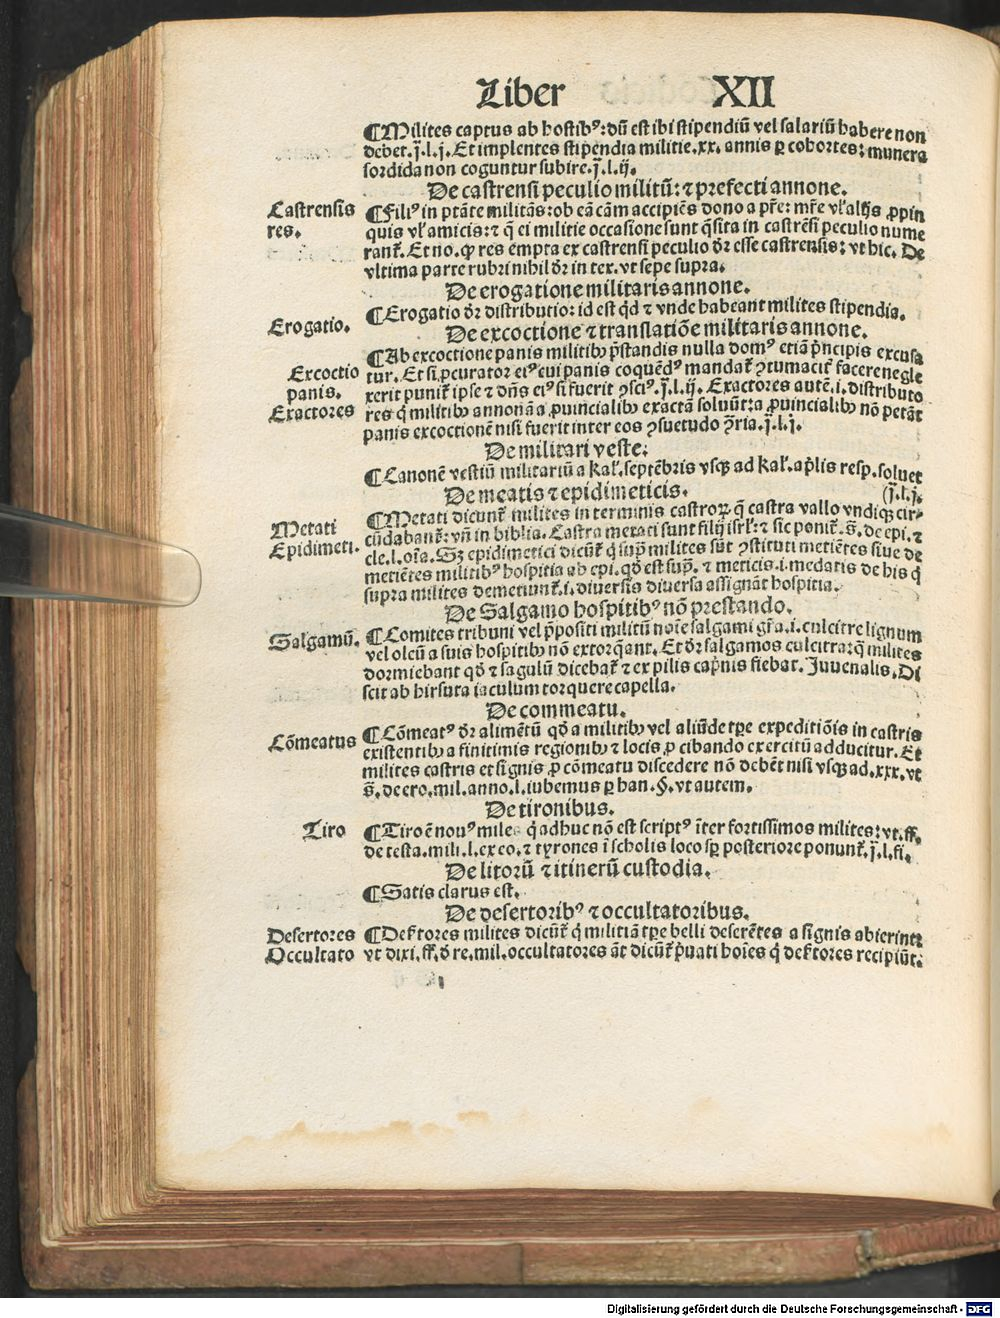 Liber XII
¶Milites captus ab hostibꝰ: dũ est ibi stipendiũ vel salariũ habere non
debet. j̃. l. j. Et implentes stipendia militie. xx. annis ꝑ cohortes: munera
sordida non coguntur subire. j̃. l. ij.
De castrensi peculio militũ: ⁊ prefecti annone.
Castrensis
res.
¶Filiꝰ in ptãte militãs: ob eã cãm accipiẽs dono a pr̃e: mr̃e vl' alijs ꝓpin
quis vl' amicis: ⁊ q̃ ei militie occasione sunt q̃sita in castrẽsi peculio nume
rant̃. Et no. ꝙ res empta ex castrensi peculio dr̃ esse castrensis: vt hic. De
vltima parte rubri nihil dr̃ in tex. vt sepe supra.
De erogatione militaris annone.
Erogatio.
¶Erogatio dr̃ distributio: id est qd̃ ⁊ vnde habeant milites stipendia.
De excoctione ⁊ translatiõe militaris annone.
Excoctio
panis.
Exactores
¶Ab excoctione panis militibꝫ p̃standis nulla domꝰ etiã p̃ncipis excusa
tur. Et si ꝓcurator eiꝰ cui panis coquẽdꝰ mandat̃ ꝯtumacit̃ facere negle
xerit punit̃ ipse ⁊ dñs eiꝰ si fuerit ꝯsciꝰ. j̃. l. ij. Exactores autẽ. i. distributo
res q̃ militibꝫ annonã a ꝓuincialibꝫ exactã soluũt: a ꝓuincialibꝫ nõ petãt
panis excoctionẽ nisi fuerit inter eos ꝯsuetudo ꝯ̃ria. j̃. l. j.
De militari veste.
¶Canonẽ vestiũ militariũ a kal'. septẽbris vsqꝫ ad kal'. ap̃lis resp. soluet
(j̃. l. j.
De meatis ⁊ epidimeticis.
Metati
Epidimeti.
¶Metati dicunt̃ milites in terminis castroꝝ q̃ castra vallo vndiqꝫ cir⸗
cũdabant̃: vñ in biblia. Castra metati sunt filij isrl': ⁊ sic ponit̃. s̃. de epi. ⁊
cle. l. oĩa. Sꝫ epidimetici dicũt̃ q̃ sup̃ milites sũt ꝯstituti metiẽtes siue de
metiẽtes militibꝰ hospitia ab epi. qd̃ est sup̃. ⁊ meticis. i. medatis de his q̃
supra milites demetiunt̃. i. diuersis diuersa assignãt hospitia.
De Salgamo hospitibꝰ nõ prestando.
Salgamũ.
¶Comites tribuni vel p̃positi militũ noĩe salgami gr̃a. i. culcitre lignum
vel oleũ a suis hospitibꝫ nõ extorq̃ant. Et dr̃ salgamos culcitra: q̃ milites
dormiebant qd̃ ⁊ sagulũ dicebat̃ ⁊ ex pilis cap̃nis fiebat. Juuenalis. Di
scit ab hirsuta iaculum torquere capella.
De commeatu.
Cõmeatus
¶Cõmeatꝰ dr̃ alimẽtũ qd̃ a militibꝫ vel aliũde tꝑe expeditiõis in castris
existentibꝫ a finitimis regionibꝫ ⁊ locis ꝓ cibando exercitũ adducitur. Et
milites castris et signis ꝓ cõmeatu discedere nõ debẽt nisi vsqꝫ ad. xxx. vt
s̃. de ero. mil. anno. l. iubemus ꝑ han. §. vt autem.
De tironibus.
Tiro
¶Tiro ẽ nouꝰ miles q̃ adhuc nõ est scriptꝰ ĩter fortissimos milites: vt. ff.
de testa. mili. l. ex eo. ⁊ tyrones ĩ scholis loco sꝑ posteriore ponunt̃. j̃. l. fi.
De litorũ ⁊ itinerũ custodia.
¶Satis clarus est.
De desertoribꝰ ⁊ occultatoribus.
Desertores
Occultato
¶Desertores milites dicũt̃ q̃ militiã tꝑe belli deserẽtes a signis abierint:
vt dixi. ff. d̃ re. mil. occultatores ãt dicũt̃ p̃uati hoĩes q̃ desertores recipiũt.
Digitalisierung gefördert durch die Deutsche Forschungsgemeinschaft - DFG